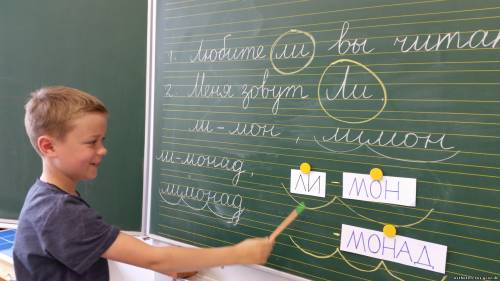 1. Любите ли вы читат
2. Меня зовут Ли
ли-мон, лимон
ли-монад,
лимонад
ЛИ - МОН
МОНАД